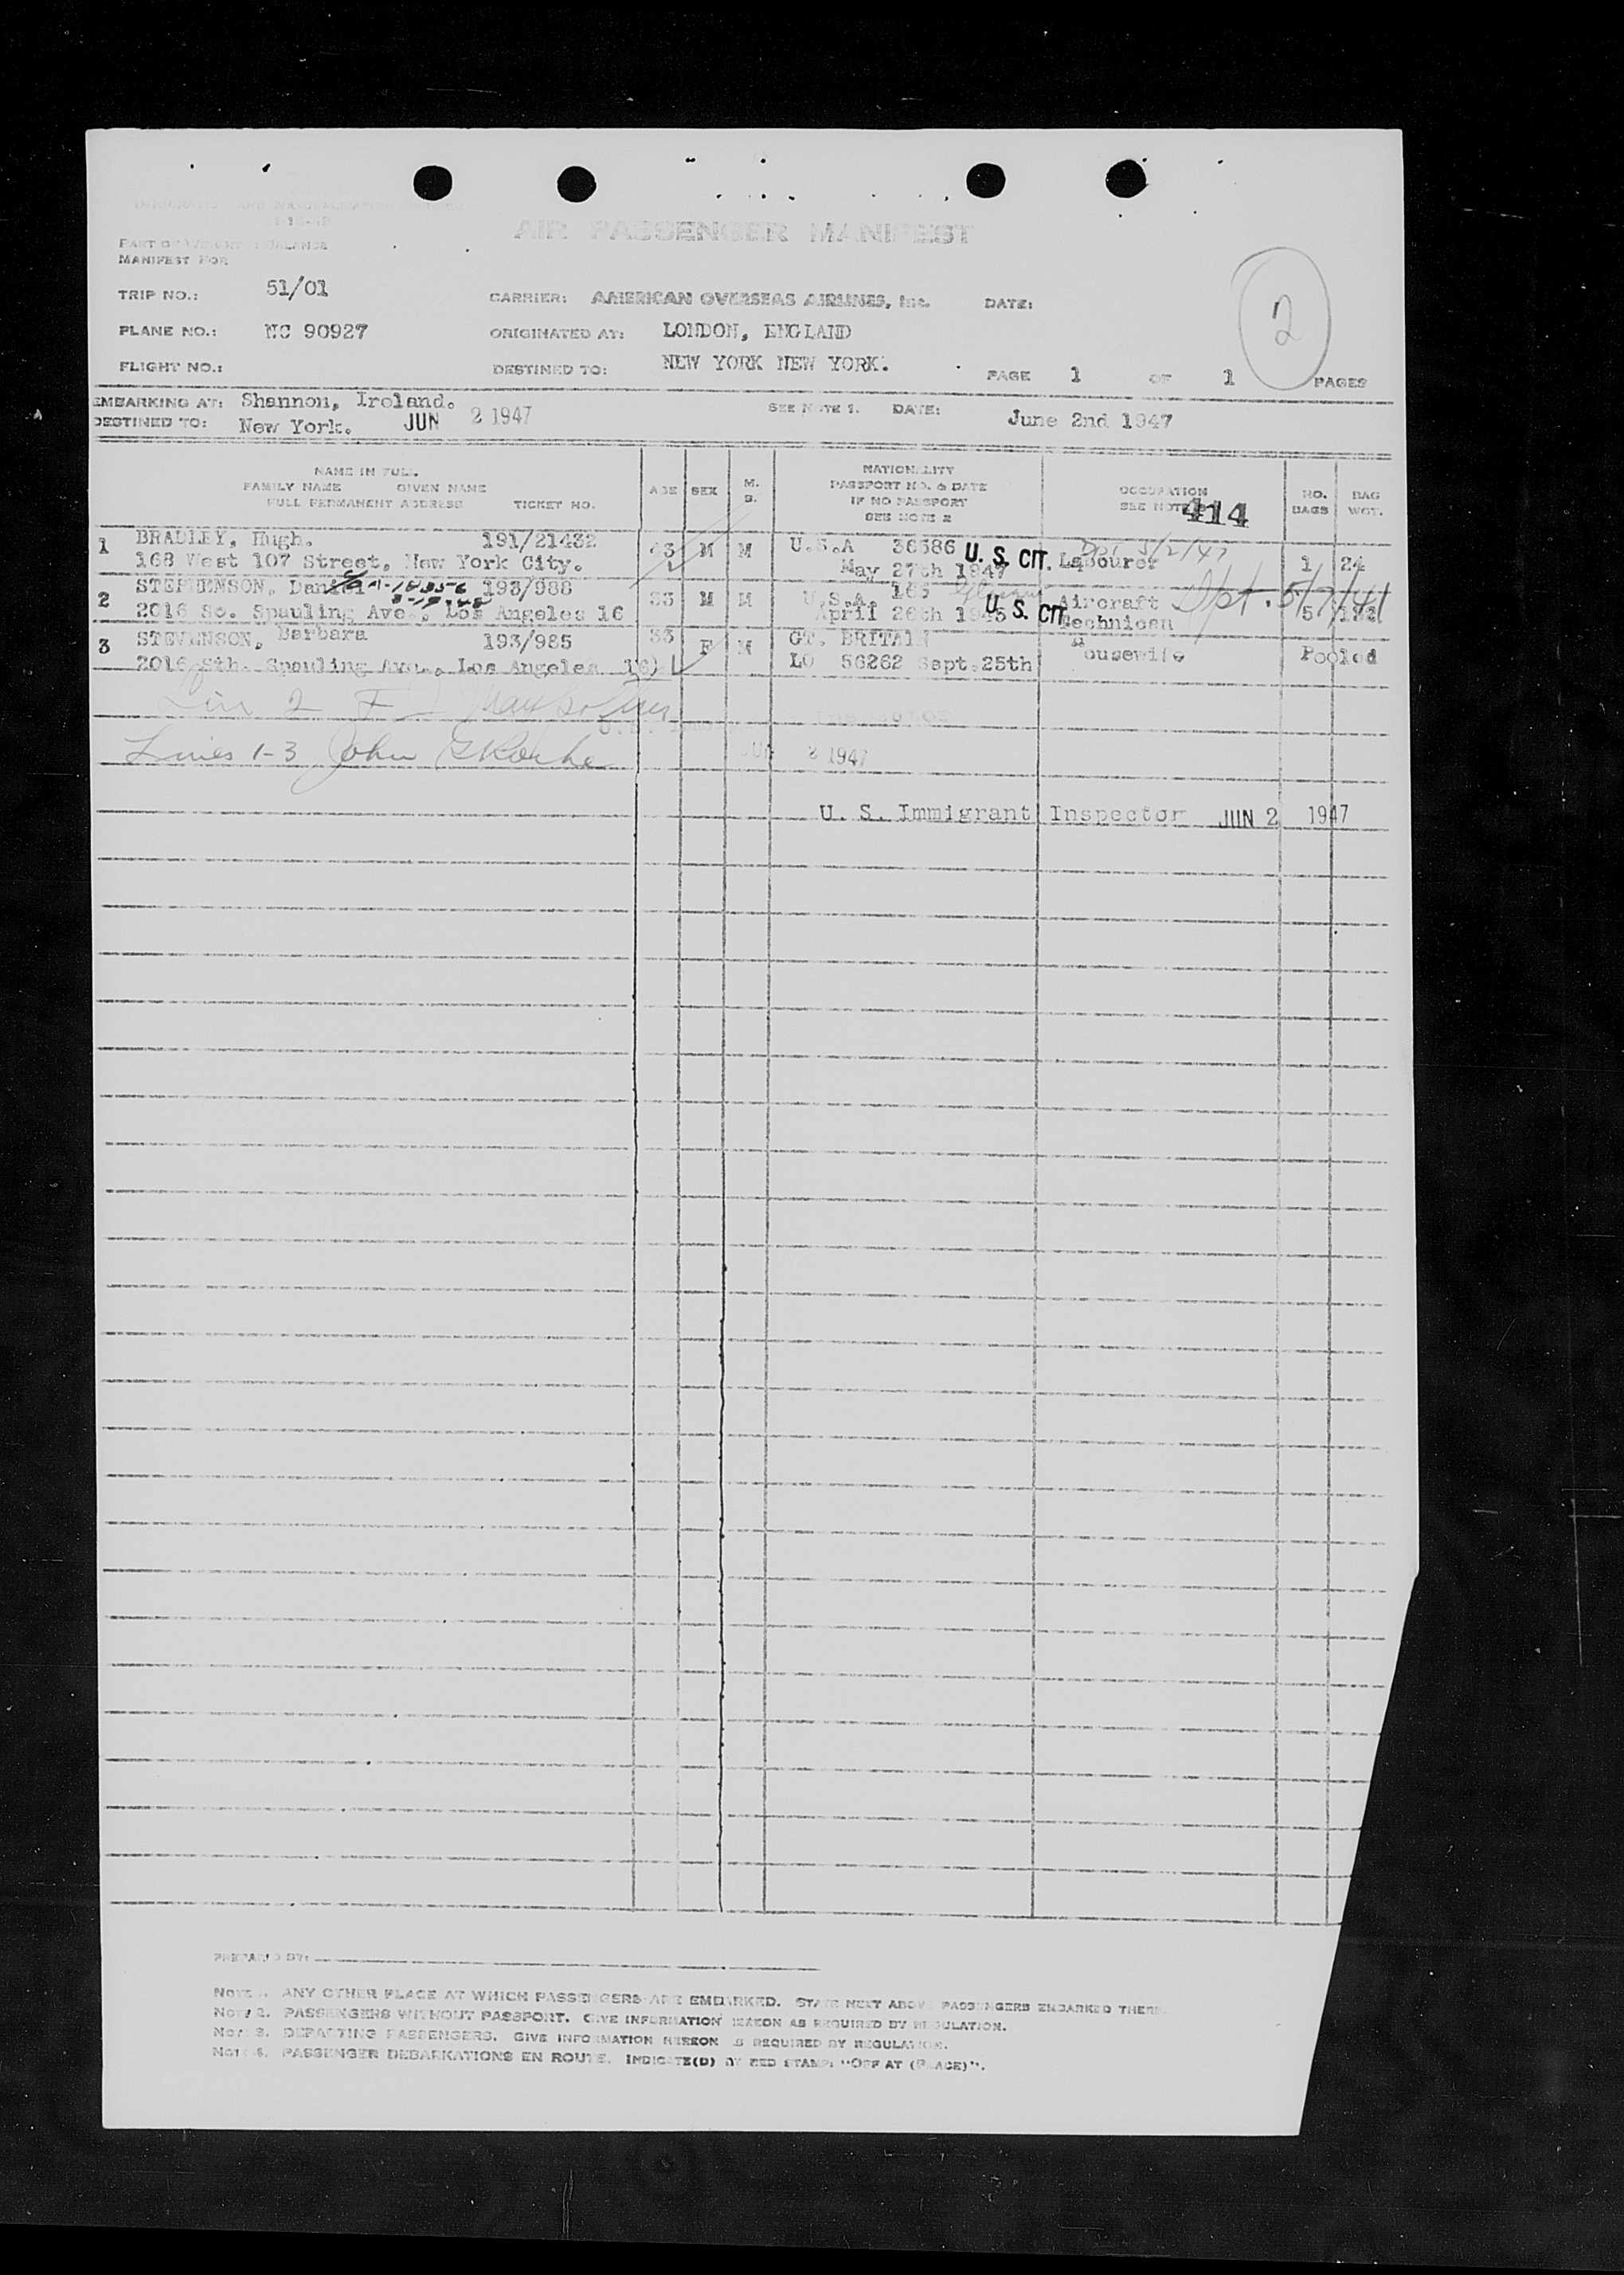 AIR PASSENGER MANIFEST
MANIFEST FOR
TRIP NO.: 51/01
CARRIER: AMERICAN OVERSEAS AIRLINES, Inc. DATE:
2
PLANE NO.: NC 90927
ORIGINATED AT: LONDON, ENGLAND
FLIGHT NO.:
DESTINED TO: NEW YORK NEW YORK.
PAGE 1 OF 1 PAGES
EMBARKING AT: Shannon, Ireland.
SEE NOTE 1. DATE: June 2nd 1947
DESTINED TO: New York. JUN 2 1947
NAME IN FULL
FAMILY NAME GIVEN NAME
FULL PERMANENT ADDRESS TICKET NO.
AGE SEX M. S.
NATIONALITY
PASSPORT NO. & DATE
IF NO PASSPORT
SEE NOTE 2
OCCUPATION
SEE NOTE 414
NO. BAGS
BAG WGT.
1 BRADLEY, Hugh. 191/21432 43 M M U.S.A 36386 U. S. CIT. Labourer 5/2/47 1 24
168 West 107 Street, New York City. May 27th 1947
2 STEPHENSON, Daniel 193/988 33 M M U.S.A. 165 U. S. CIT. Aircraft
2016 So. Spauling Ave., Los Angeles 16 April 26th 1945 Technican 5
3 STEVENSON, Barbara 193/985 33 F M GT. BRITAIN Housewife Pooled
2016 Sth. Spauling Ave., Los Angeles 16) LO 56262 Sept.25th
Lines 1-3 John
2 1947
U. S. Immigrant Inspector JUN 2 1947
PREPARED BY:
NOTE 1. ANY OTHER PLACE AT WHICH PASSENGERS ARE EMBARKED. STATE NEXT ABOVE PASSENGERS EMBARKED THERE
NOTE 2. PASSENGERS WITHOUT PASSPORT. GIVE INFORMATION HEREON AS REQUIRED BY REGULATION.
NOTE 3. DEPARTING PASSENGERS. GIVE INFORMATION HEREON AS REQUIRED BY REGULATION.
NOTE 4. PASSENGER DEBARKATIONS EN ROUTE. INDICATE(D) BY RED STAMP: "OFF AT (PLACE)".